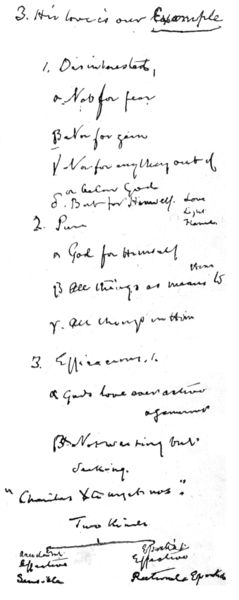 3. His love is our Example
1. Disinterested,
α Not for fear
β Nor for gain
γ Nor for anything out of
or below God
δ. But for Himself. Love
Light
2. Pure
α God for Himself
β All things as means to
Him
γ. All things in Him
3. Efficacious.
α Gods love over active
β Not wasting but
seeking.
"Charitas X urget nos".
Two kinds
Affective Effective
Sensible Rational